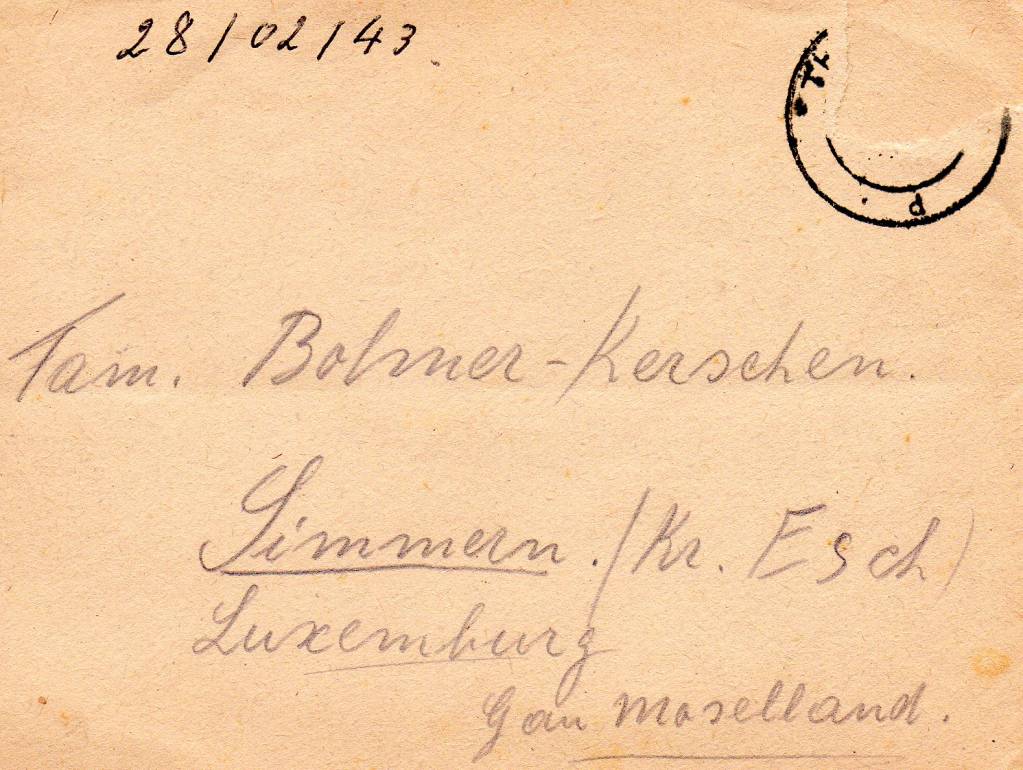 28/02/43
P
Fam. Bohmer-Kerschen.
Simmern. (Kr. Esch)
Luxemburg
Gau Moselland.